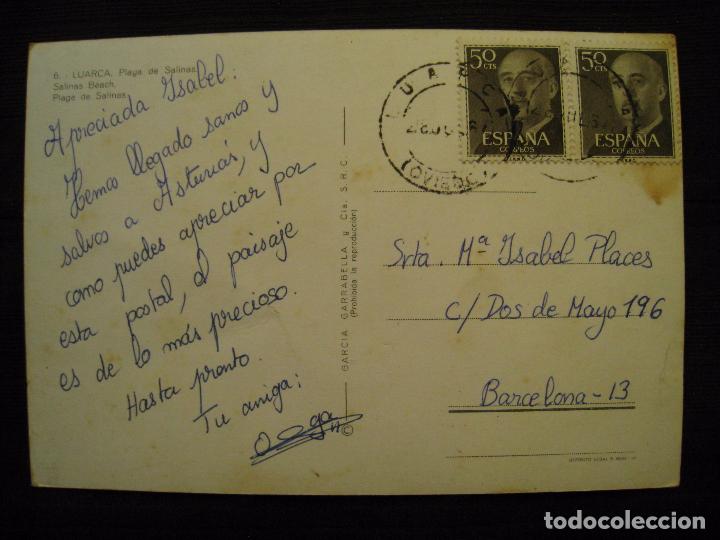 6. - LUARCA. Playa de Salinas
Salinas Beach.
Plage de Salinas.
Apreciada Isabel:
Hemos llegado sanos y
salvos a Asturias, y
como puedes apreciar por
esta postal, el paisaje
es de lo más precioso.
Hasta pronto.
Tu amiga:
© GARCIA GARRABELLA y Cía. S.R.C.
(Prohibida la reproducción)
50
CTS
ESPAÑA
CORREOS
50
CTS
ESPAÑA
CORREOS
LUARCA
(OVIEDO)
Srta. Mª Isabel Places
c/ Dos de Mayo 196
Barcelona-13
DEPOSITO LEGAL B.
todocoleccion
todocoleccion.net